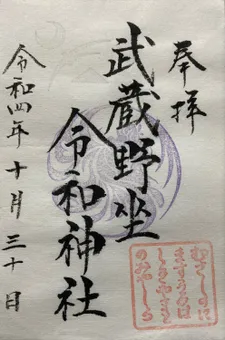 奉拝
武蔵野坐
令和神社
令和四年十月三十日
むさしのに
ますうるは
しきやまと
のみやしろ